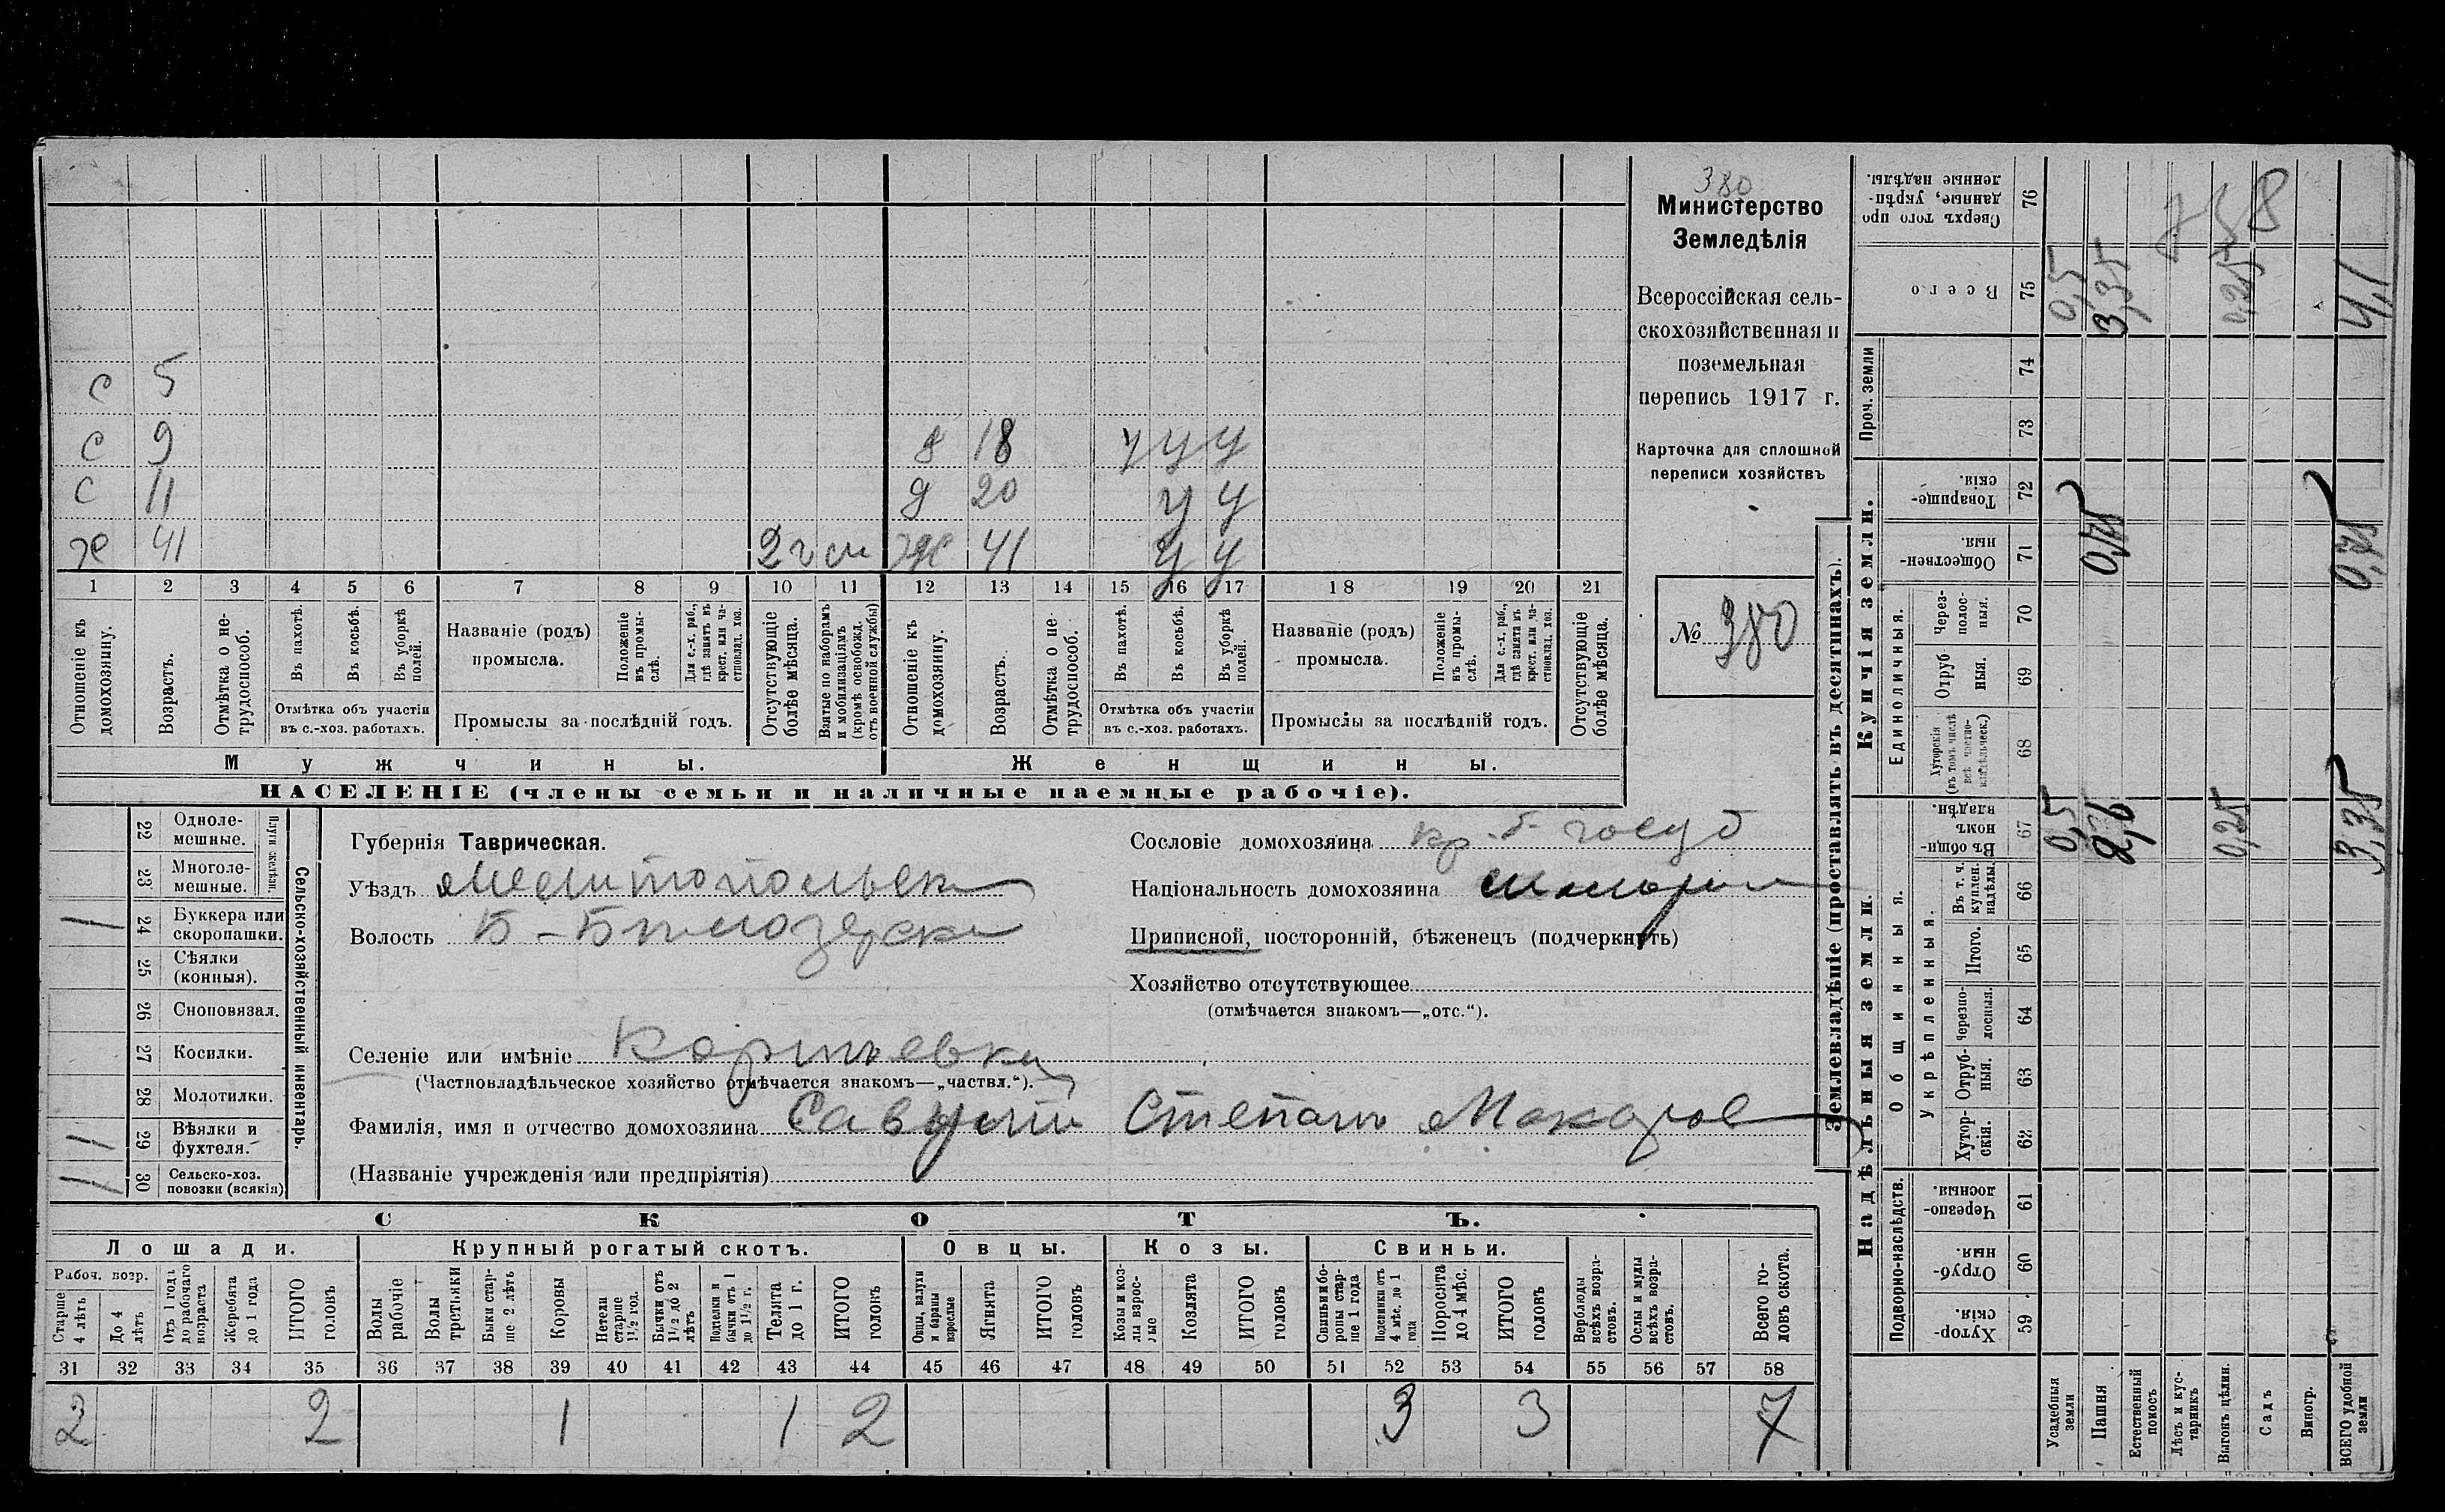 380
Министерство
Земледѣлія
Всероссійская сель-
скохозяйственная и
поземельная
перепись 1917 г.
Карточка для сплошной
переписи хозяйствъ
№ 380
с 5
с 9
с 11
ж 41 2 г см
8 18 у у у
д 20 у у
же 41 у у
1 2 3 4 5 6 7 8 9 10 11 12 13 14 15 16 17 18 19 20 21
Отношеніе къ домохозяину.
Возрастъ.
Отмѣтка о не-трудоспособ.
Въ пахотѣ.
Въ косьбѣ.
Въ уборкѣ полей.
Отмѣтка объ участіи
въ с.-хоз. работахъ.
Названіе (родъ)
промысла.
Положеніе въ промы-слѣ.
Для с.-х. раб., гдѣ занятъ въ крест. или ча-стновлад. хоз.
Промыслы за послѣдній годъ.
Отсутствующіе болѣе мѣсяца.
Взятые по наборамъ и мобилизаціямъ (кромѣ освобожд. отъ военной службы)
Отношеніе къ домохозяину.
Возрастъ.
Отмѣтка о не-трудоспособ.
Въ пахотѣ.
Въ косьбѣ.
Въ уборкѣ полей.
Отмѣтка объ участіи
въ с.-хоз. работахъ.
Названіе (родъ)
промысла.
Положеніе въ промы-слѣ.
Для с.-х. раб., гдѣ занята въ крест. или ча-стновлад. хоз.
Промыслы за послѣдній годъ.
Отсутствующіе болѣе мѣсяца.
Мужчины. Женщины.
НАСЕЛЕНІЕ (члены семьи и наличные наемные рабочіе).
Сельско-хозяйственный инвентарь.
22 Одноле-мешные.
23 Многоле-мешные.
24 Буккера или скоропашки. 1
25 Сѣялки (конныя).
26 Сноповязал.
27 Косилки.
28 Молотилки.
29 Вѣялки и фухтеля. 1
30 Сельско-хоз. повозки (всякія) 1
Губернія Таврическая.
Уѣздъ Мелитопольск
Волость Б-Бѣлозерска
Селеніе или имѣніе
(Частновладѣльческое хозяйство отмѣчается знакомъ—„частвл.“).
Фамилія, имя и отчество домохозяина Степанъ Макаров
(Названіе учрежденія или предпріятія)
Сословіе домохозяина кр. б. госуд
Національность домохозяина
Приписной, посторонній, бѣженецъ (подчеркнуть)
Хозяйство отсутствующее
(отмѣчается знакомъ—„отс.“).
СКОТЪ.
Лошади. Крупный рогатый скотъ. Овцы. Козы. Свиньи.
Рабоч. возр.
Старше 4 лѣтъ
До 4 лѣтъ
Отъ 1 года до рабочаго возраста
Жеребята до 1 года
ИТОГО головъ
Волы рабочіе
Волы третьяки
Быки стар-ше 2 лѣтъ
Коровы
Нетели старше 1½ год.
Бычки отъ 1½ до 2 лѣтъ
Подтелки и бычки отъ 1 до 1½ г.
Телята до 1 г.
ИТОГО головъ
Овцы, валухи и бараны взрослые
Ягнята
ИТОГО головъ
Козы и коз-лы взрос-лые
Козлята
ИТОГО головъ
Свиньи и бо-ровы стар-ше 1 года
Подсвинки отъ 4 мѣс. до 1 года
Поросята до 4 мѣс.
ИТОГО головъ
Верблюды всѣхъ возра-стовъ.
Ослы и мулы всѣхъ возра-стовъ.
Всего го-ловъ скота.
31 32 33 34 35 36 37 38 39 40 41 42 43 44 45 46 47 48 49 50 51 52 53 54 55 56 57 58
2 2 1 1 2 3 3 7
Землевладѣніе (проставлять въ десятинахъ).
Надѣльныя земли. Купчія земли. Проч. земли
Подворно-наслѣдств.
Общинныя.
Укрѣпленныя.
Единоличныя.
59 Хутор-скія.
60 Отруб-ныя.
61 Черезпо-лосныя.
62 Хутор-скія.
63 Отруб-ныя.
64 Черезпо-лосныя.
65 Итого.
66 Въ т. ч. куплен. надѣлы.
67 Въ общин-номъ владѣн.
68 Хуторскія (въ томъ числѣ всѣ частно-владѣльческ.)
69 Отруб ныя.
70 Через-полос-ныя.
71 Обществен-ныя.
72 Товарище-скія.
73
74
75 Всего
76 Сверхъ того про данные, укрѣп-ленные надѣлы.
Усадебныя земли 0,5 0,5
Пашня 2,6 0,75 3,35
Естественный покосъ
Лѣсъ и кус-тарникъ
Выгонъ цѣлин. 0,25 0,25
Садъ
Виногр.
ВСЕГО удобной земли 3,35 0,75 4,1
758